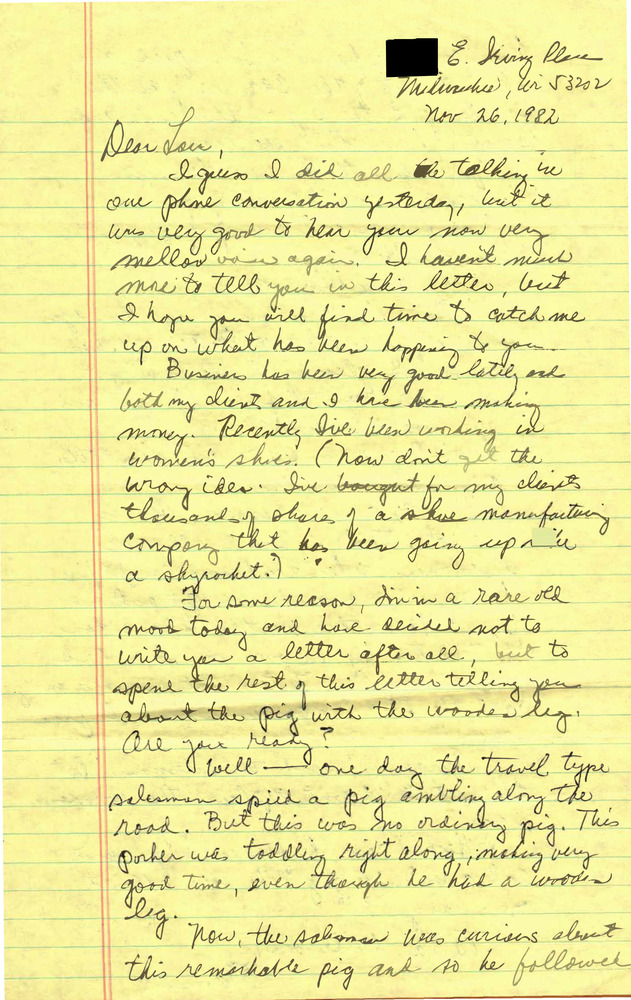 E. Irving Place
Milwaukee, Wi 53202
Nov 26, 1982
Dear Lou,
I guess I did all the talking in
our phone conversation yesterday, but it
was very good to hear your now very
mellow voice again. I haven't much
more to tell you in this letter, but
I hope you will find time to catch me
up on what has been happening to you.
Business has been very good lately and
both my clients and I have been making
money. Recently I've been working in
women's shoes. (Now don't get the
wrong idea. I've bought for my clients
thousands of shares of a shoe manufacturing
company that has been going up like
a skyrocket.)
For some reason, I'm in a rare old
mood today and have decided not to
write you a letter after all, but to
spend the rest of this letter telling you
about the pig with the wooden leg.
Are you ready?
Well — one day the travel type
salesman spied a pig ambling along the
road. But this was no ordinary pig. This
porker was toddling right along, making very
good time, even though he had a wooden
leg.
Now, the salesman was curious about
this remarkable pig and so he followed